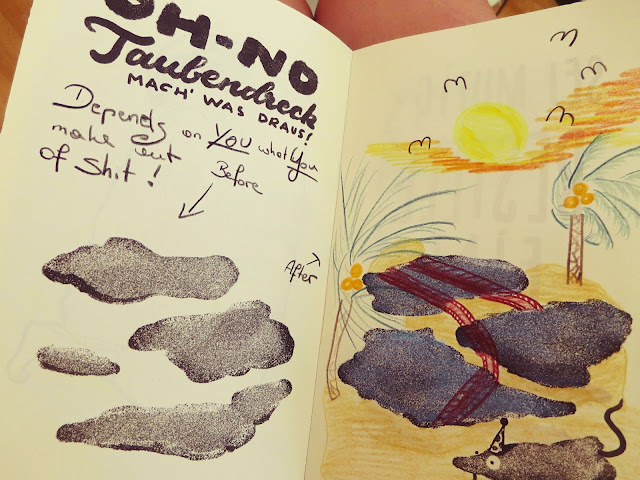 OH-NO
Taubendreck
MACH' WAS DRAUS!
Depends on You what You
make out
of Shit!
Before
After